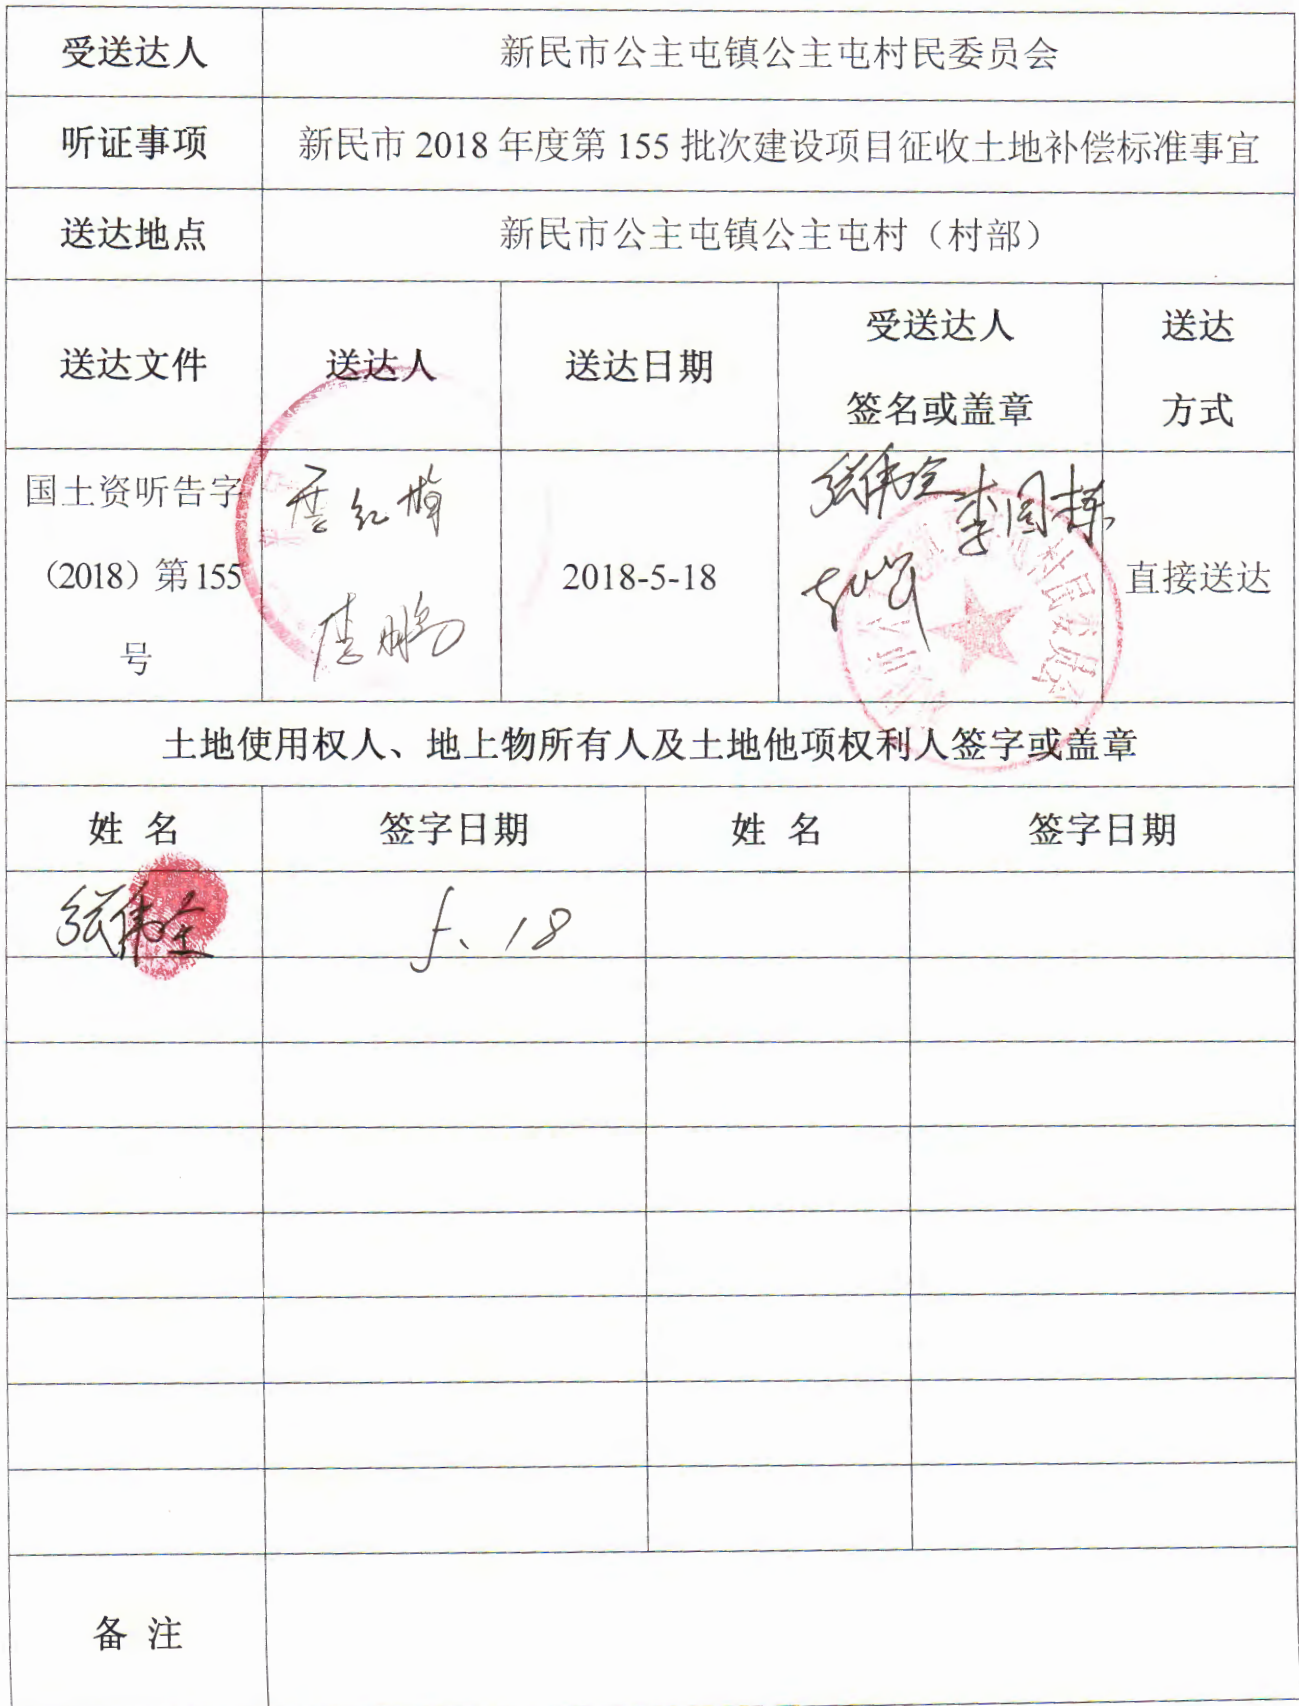 受送达人 新民市公主屯镇公主屯村民委员会
听证事项 新民市 2018 年度第 155 批次建设项目征收土地补偿标准事宜
送达地点 新民市公主屯镇公主屯村（村部）
送达文件 送达人 送达日期 受送达人 送达
签名或盖章 方式
国土资听告字
（2018）第 155 2018-5-18 直接送达
号
李鹏
张伟全 李国栋
土地使用权人、地上物所有人及土地他项权利人签字或盖章
姓 名 签字日期 姓 名 签字日期
张伟全 5、18
备 注